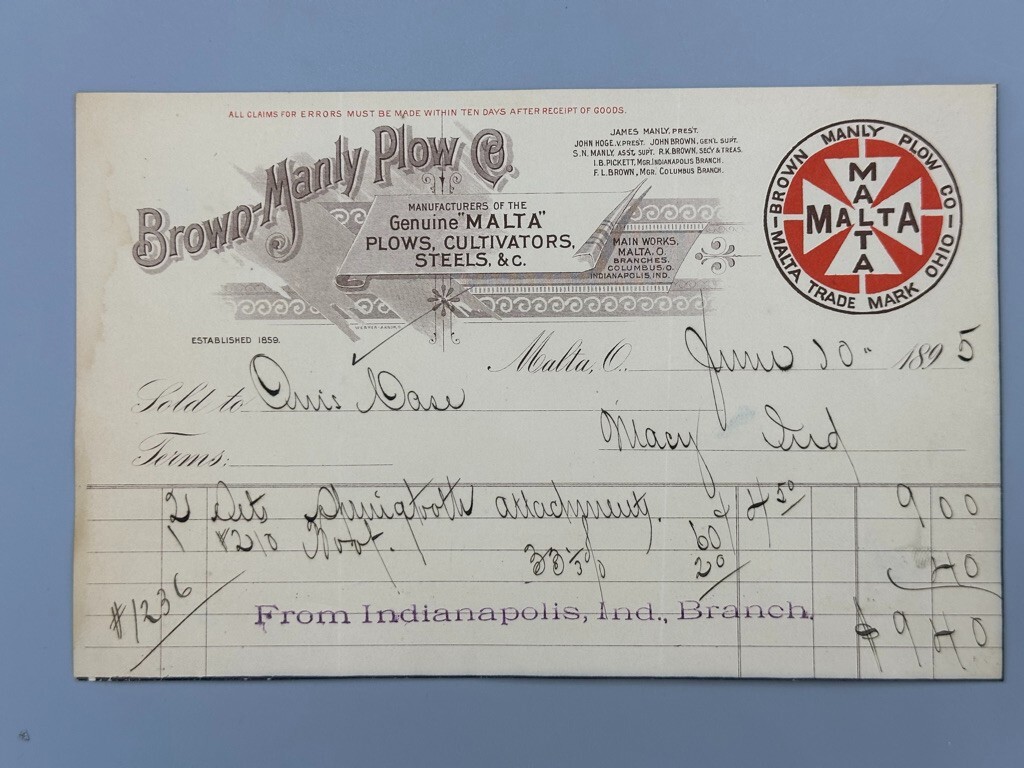 ALL CLAIMS FOR ERRORS MUST BE MADE WITHIN TEN DAYS AFTER RECEIPT OF GOODS.
Brown-Manly Plow Co.
JAMES MANLY, PREST.
JOHN HOGE, V. PREST. JOHN BROWN, GEN'L SUPT.
S.N. MANLY, ASST. SUPT. R.K. BROWN, SECY & TREAS.
I.B. PICKETT, MGR. INDIANAPOLIS BRANCH.
F.L. BROWN, MGR. COLUMBUS BRANCH.
MANUFACTURERS OF THE
Genuine "MALTA"
PLOWS, CULTIVATORS,
STEELS, &C.
MAIN WORKS,
MALTA, O.
BRANCHES,
COLUMBUS, O.
INDIANAPOLIS, IND.
BROWN MANLY PLOW CO
MALTA
MALTA
MALTA TRADE MARK OHIO
ESTABLISHED 1859.
Malta, O. June 10 1895
Sold to Case
Macy Ind
Terms:
2 Sets Springtooth attachments. 4 50 9 00
1 #210 Foot. 60
33 1/3 % 20 40
#1236
From Indianapolis, Ind., Branch.
$ 9 40